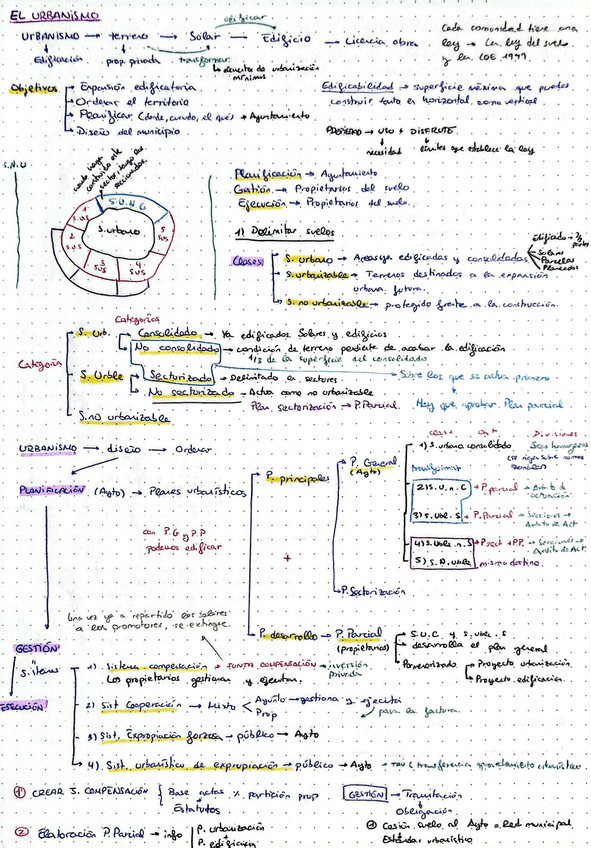 EL URBANISMO
edificar
URBANISMO → terreno → Solar → Edificio → Licencia obra
Edificación prop. privada transformar
elementos de urbanización mínimos
Cada comunidad tiene una
ley → La ley del suelo
y la LOE 1999.
Objetivos → Expansión edificatoria
→ Ordenar el territorio
→ Planificar (donde, cuando, el qué) → Ayuntamiento
→ Diseño del municipio
Edificabilidad → superficie máxima que puedes
construir tanto en horizontal como vertical
PROPIEDAD → USO + DISFRUTE
necesidad límites que establece la ley
S.N.U
S.U.N.C
S.urbano
1 S.US
2 S.US
3 SUS
4 SUS
5 SUS
Planificación → Ayuntamiento
Gestión → Propietarios del suelo
Ejecución → Propietarios del suelo.
1) Delimitar suelos
Edificado → 2/3 partes
Solares
Parcelas
Clases: S. urbano → Areas ya edificadas y consolidadas
S. urbanizable → Terrenos destinados a la expansión
urbana futura.
S. no urbanizable → protegido frente a la construcción.
Categorías
Categoría
S. Urb. Consolidado → Ya edificados. Solares y edificios
No consolidado → condición de terreno pendiente de acabar la edificación
1/3 de la superficie del consolidado
S. Urble Sectorizado → Delimitado en sectores. → Sobre los que se actua primero
No sectorizado → Actua como no urbanizable
Plan sectorización → P.Parcial. Hay que aprobar Plan parcial
S. no urbanizable
URBANISMO → diseño → Ordenar
PLANIFICACIÓN (Ayto) → Planes urbanísticos
con P.G y P.P
podemos edificar
P. principales
+
P. General
(Ayto)
Divisiones
1) S. urbano consolidado
transformar
2) S. U. n. C + P. parcial → Ambito de actuación.
3) S. Uble. S + P. Parcial → Sectores → Ambito de Act
4) S. Uble. n. S → P. sect + PP. → Sectores → Ambito de Act.
5) S. N. Uble mismo destino.
P. Sectorización
P. desarrollo → P. Parcial
(propietarios)
S.U.C. y S. uble. S
desarrolla el plan general
Pormenorizado Proyecto urbanización.
Proyecto edificación.
Una vez ya a repartido los solares
a los promotores, se extingue.
GESTIÓN
Sistemas
EJECUCIÓN
1) Sistema compensación → JUNTA COMPENSACIÓN → inversión privada
Los propietarios gestionan y ejecutan.
2) Sist Cooperación → Mixto Ayunto → gestiona y ejecuta
Prop pasa la factura.
3) Sist. Expropiación forzosa → público → Ayto
4) Sist. urbanístico de expropiación → público → Ayto → TAU (transferencia aprovechamiento urbanístico.
1 CREAR J. COMPENSACIÓN Base actas % partición prop
Estatutos
GESTIÓN → Tramitación
Obligación
2 Elaboración P. Parcial → info P. urbanización
P. edificación
1 Cesión suelo al Ayto = Red municipal
Estándar urbanístico